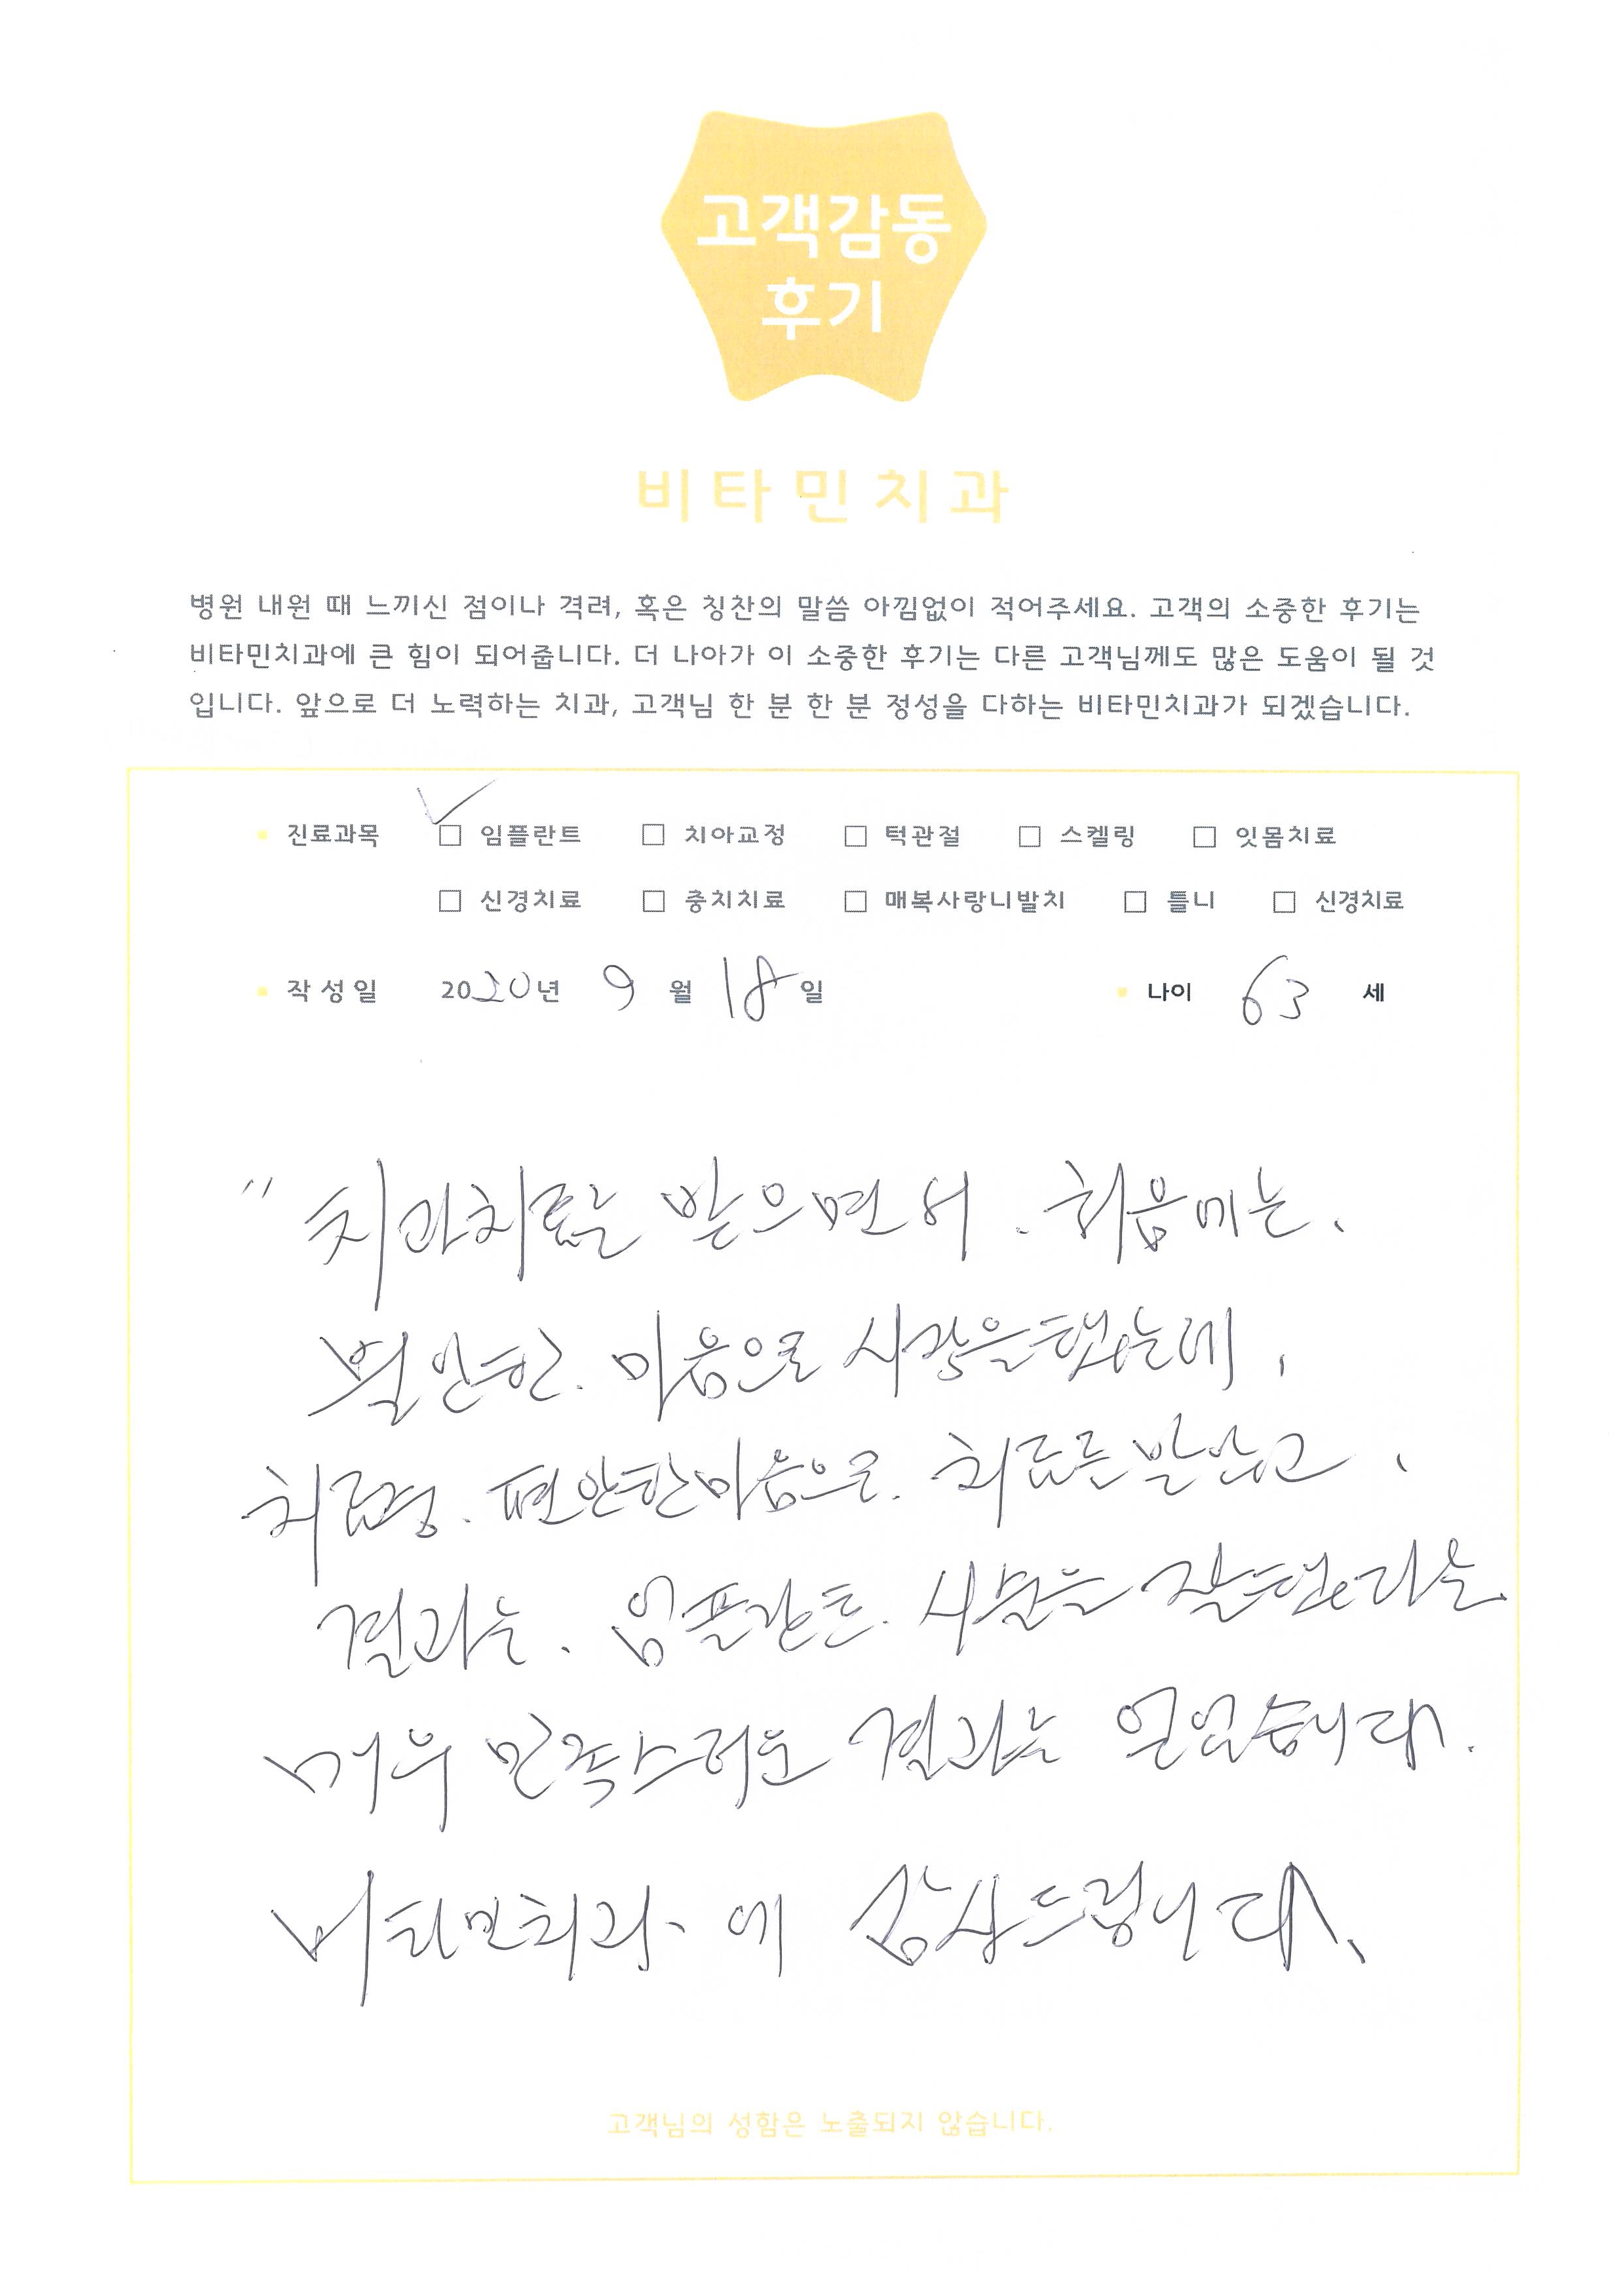 고객감동
후기
비타민치과
병원 내원 때 느끼신 점이나 격려, 혹은 칭찬의 말씀 아낌없이 적어주세요. 고객의 소중한 후기는
비타민치과에 큰 힘이 되어줍니다. 더 나아가 이 소중한 후기는 다른 고객님께도 많은 도움이 될 것
입니다. 앞으로 더 노력하는 치과, 고객님 한 분 한 분 정성을 다하는 비타민치과가 되겠습니다.
진료과목 ☐ 임플란트 ☐ 치아교정 ☐ 턱관절 ☐ 스켈링 ☐ 잇몸치료
☐ 신경치료 ☐ 충치치료 ☐ 매복사랑니발치 ☐ 틀니 ☐ 신경치료
작성일 2020년 9월 18일 나이 63 세
" 치과치료를 받으면서. 처음에는.
불안한. 마음으로 시작을했는데,
편안한마음으로. 치료를 받았고,
결과는. 임플란트. 시술을 잘했다는
매우 만족스러운 결과를 얻었습니다.
비타민치과. 에 감사드립니다.
고객님의 성함은 노출되지 않습니다.